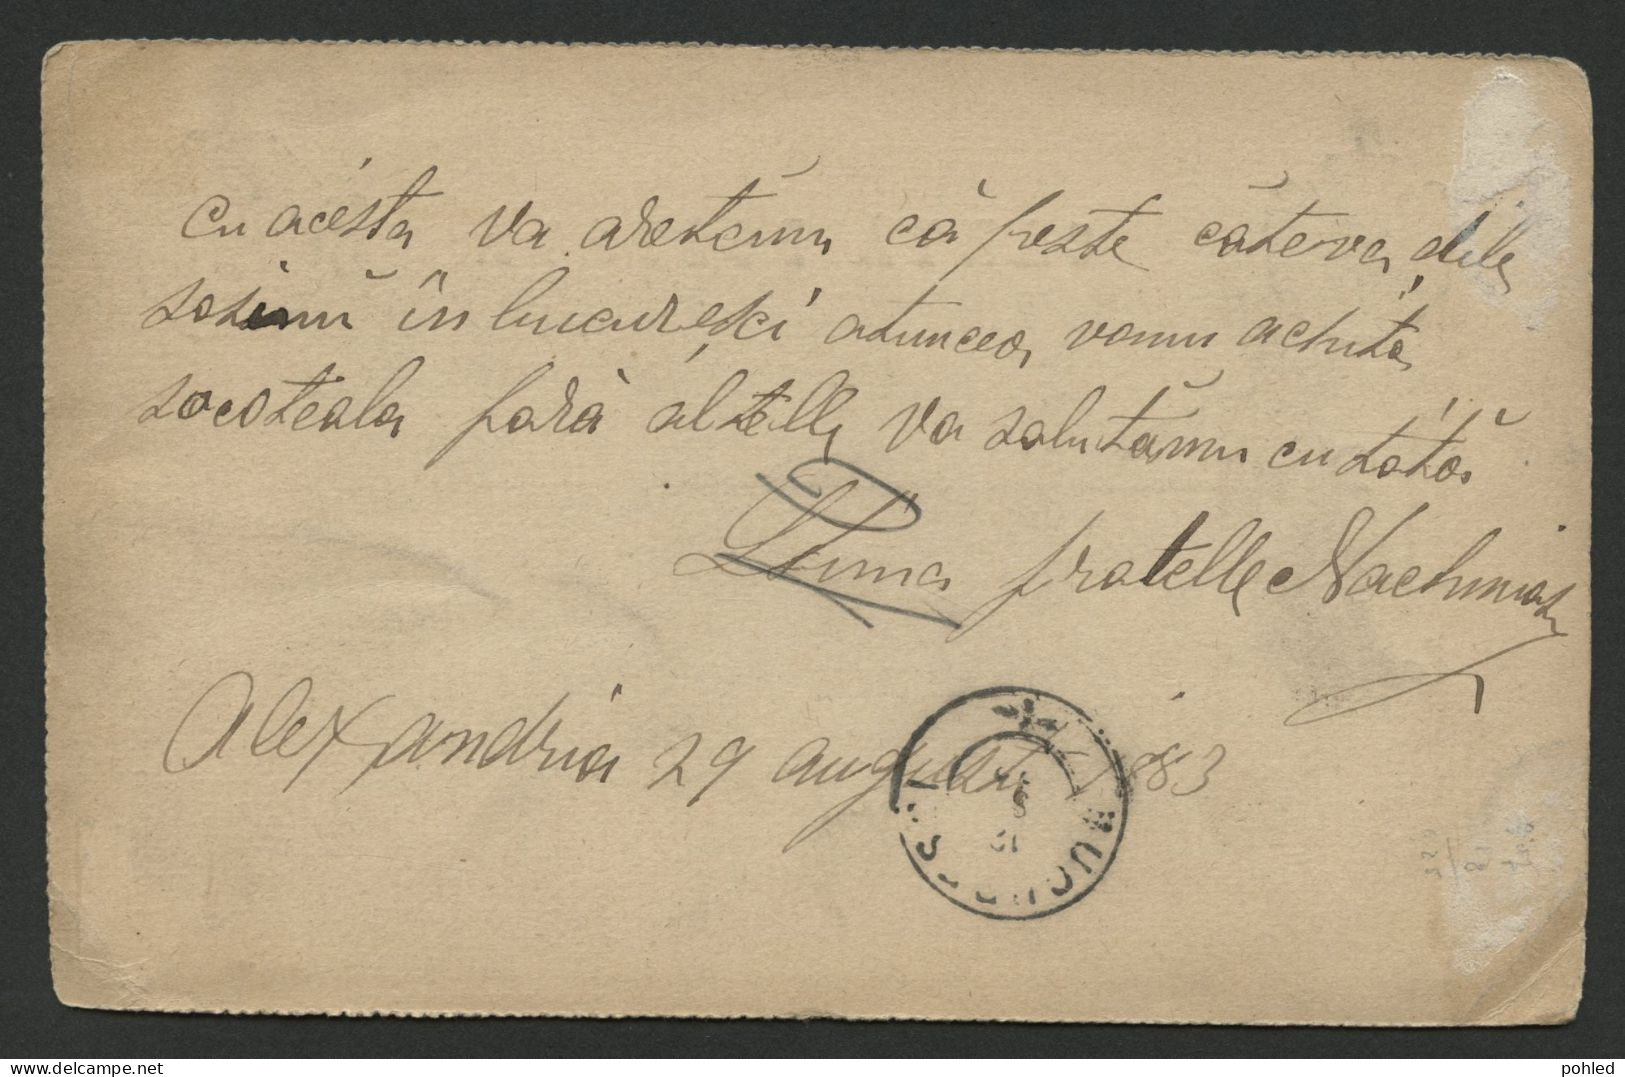 cu acésta va aretămu că peste câteva dile
sosimŭ în bucuresci atuncea vomu achita
socoteala fara altelle va salutămu cu totŏ
stima fratelle Nachmias
Alexandria 29 august 1883
BUCURESCI
delcampe.net
pohled